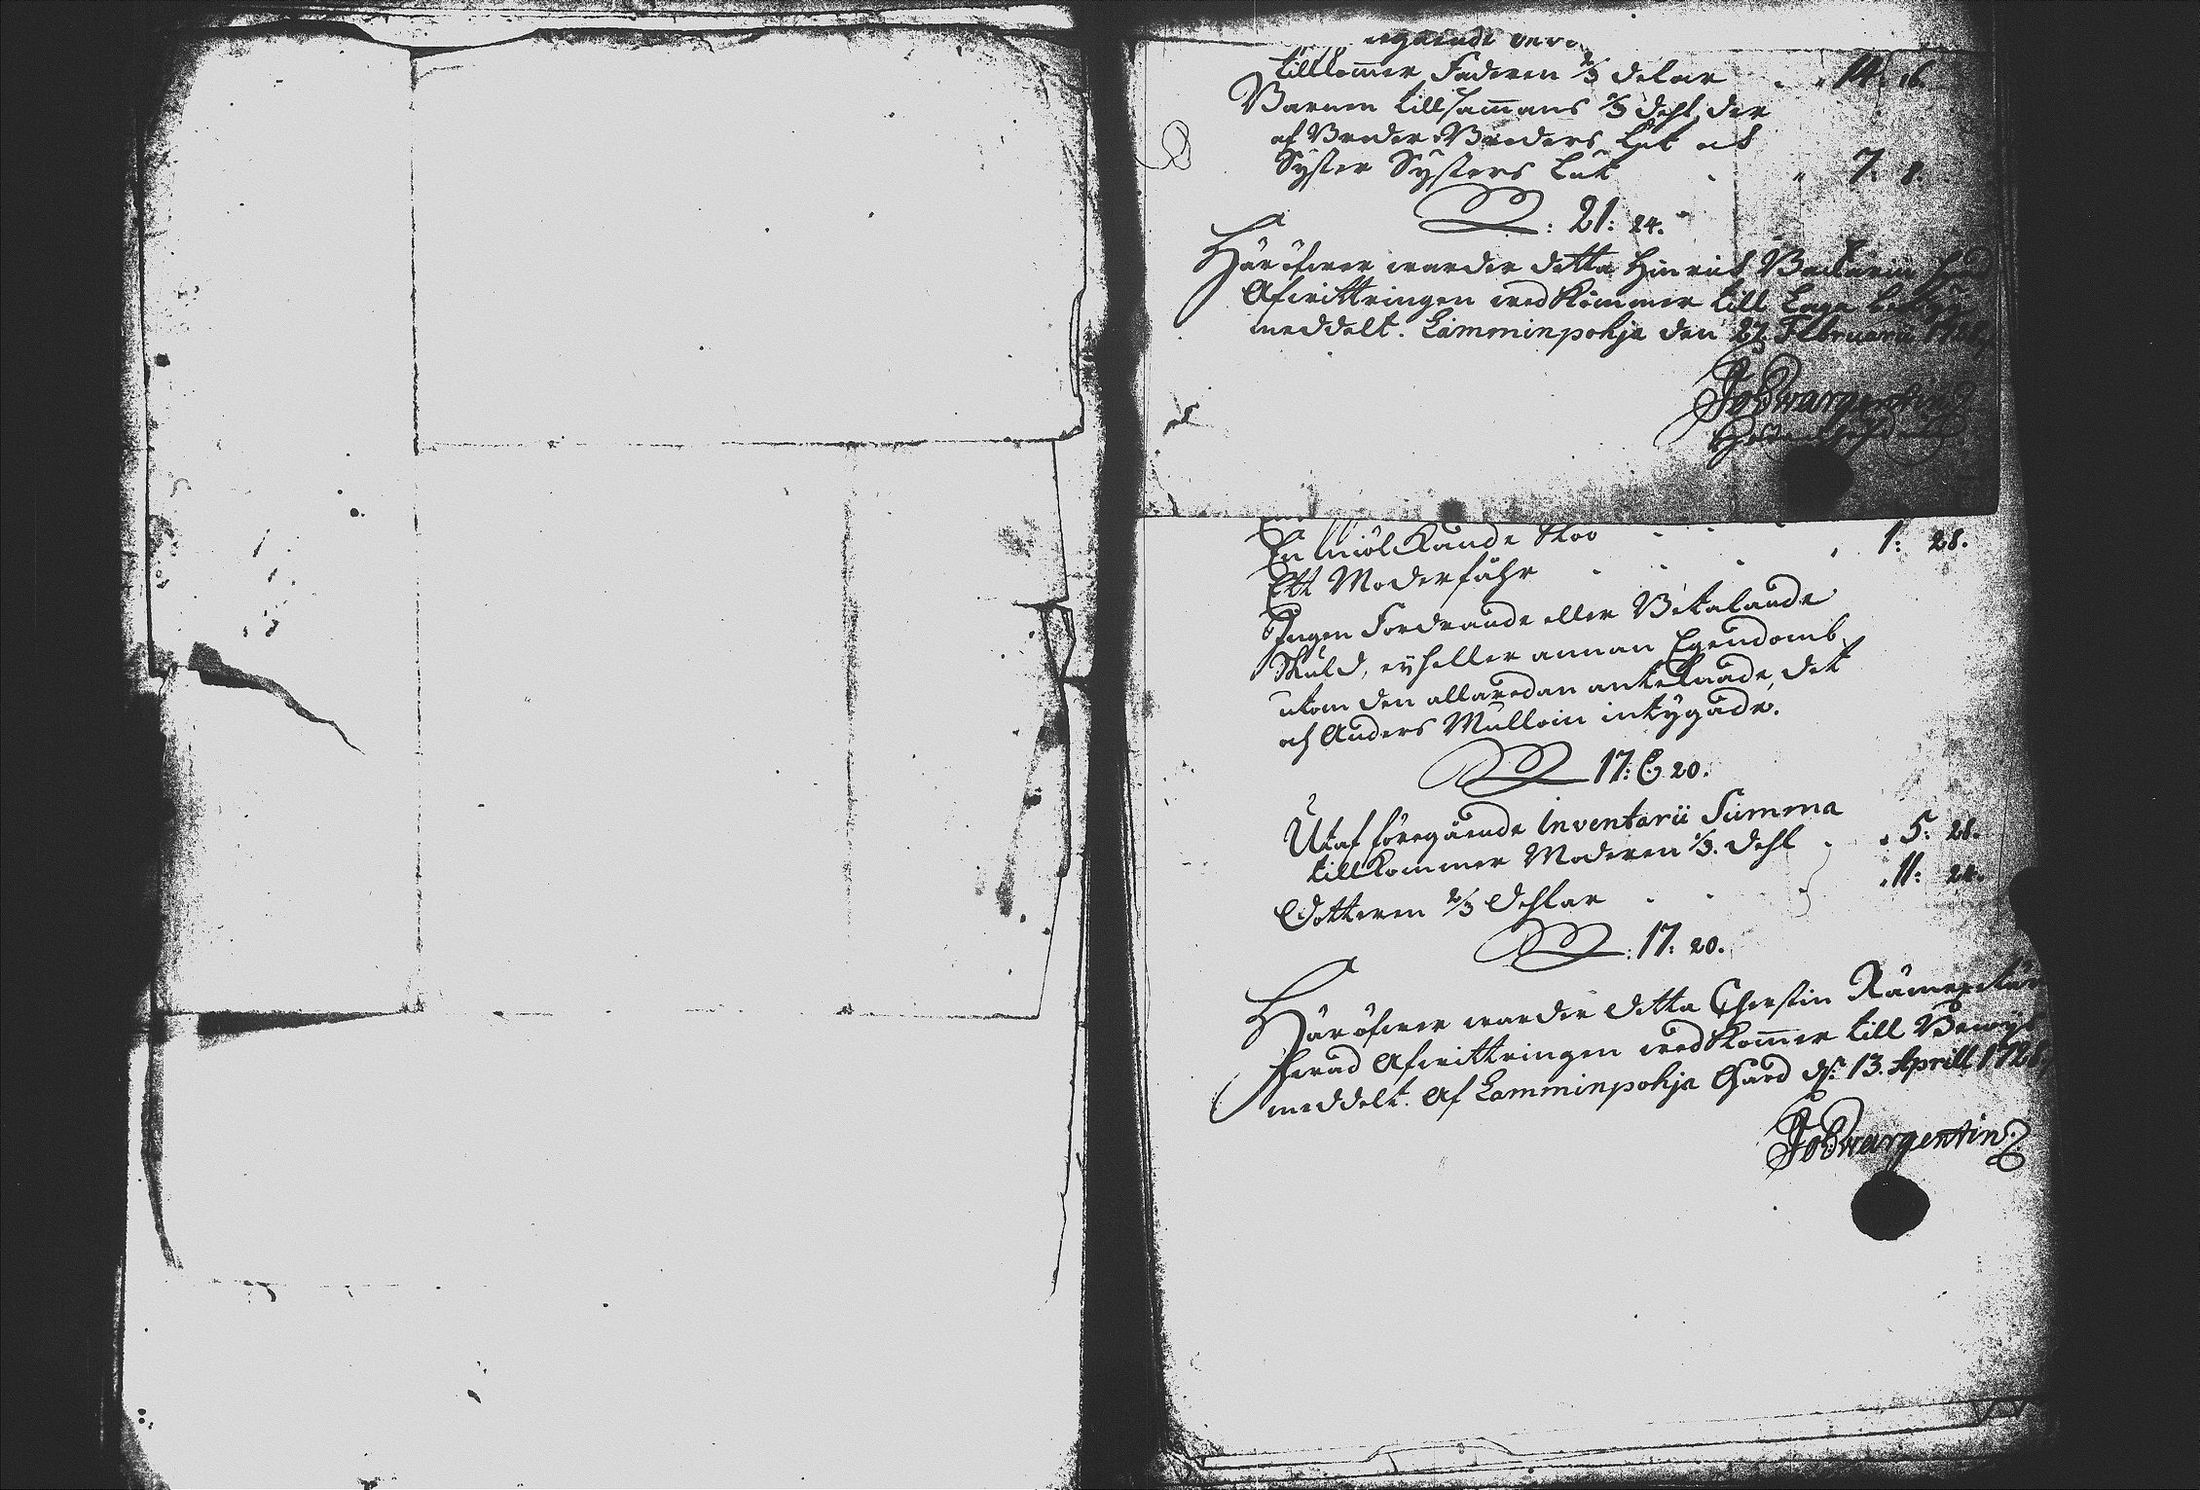 tillkommer Faderen 2/3 delar . . 14: 16.
Barnen tillsammans 1/3 dehl, der
af Broder Broders Lått och
Syster Systers Lått . . 7: 8.
: 21: 24.
Häröfwer warder detta Hinrich
Afwittringen wedkommer till Laga
meddelt. Lamminpohja den 27. Februarii
JoWargentin
En miölckande Koo . . 1: 28.
Ett Moderfåhr . . .
Ingen Fordrande eller Betalande
Skuld, eij heller annan Egendomb,
utom den allaredan antecknade, det
och Anders Mulloin intygade.
17: 20.
Utaf föregående Inventarii Summa
tillkommer Moderen 1/3. dehl . . 5: 28.
Dotteren 2/3 dehlar . . 11: 24.
: 17: 20.
Häröfwer warder detta Cherstin
hwad Afwittringen wedkommer till Bewijs
meddelt. Af Lamminpohja Gård d. 13. Aprill 1728.
JoWargentin